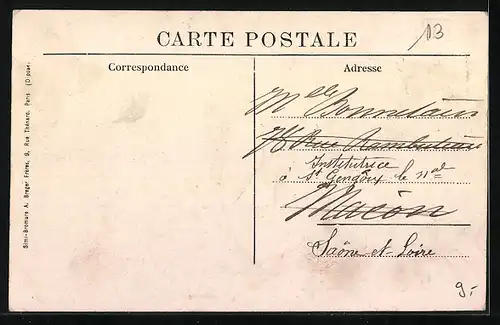 13
CARTE POSTALE
Correspondance
Adresse
Simi-Bromure A. Breger Frères, 9, Rue Thénard, Paris (Déposé)
Melle Bonnetain
76 Rue Rambuteau
Institutrice
à St Gengoux le Nal
Macon
Saône-et-Loire
9.-